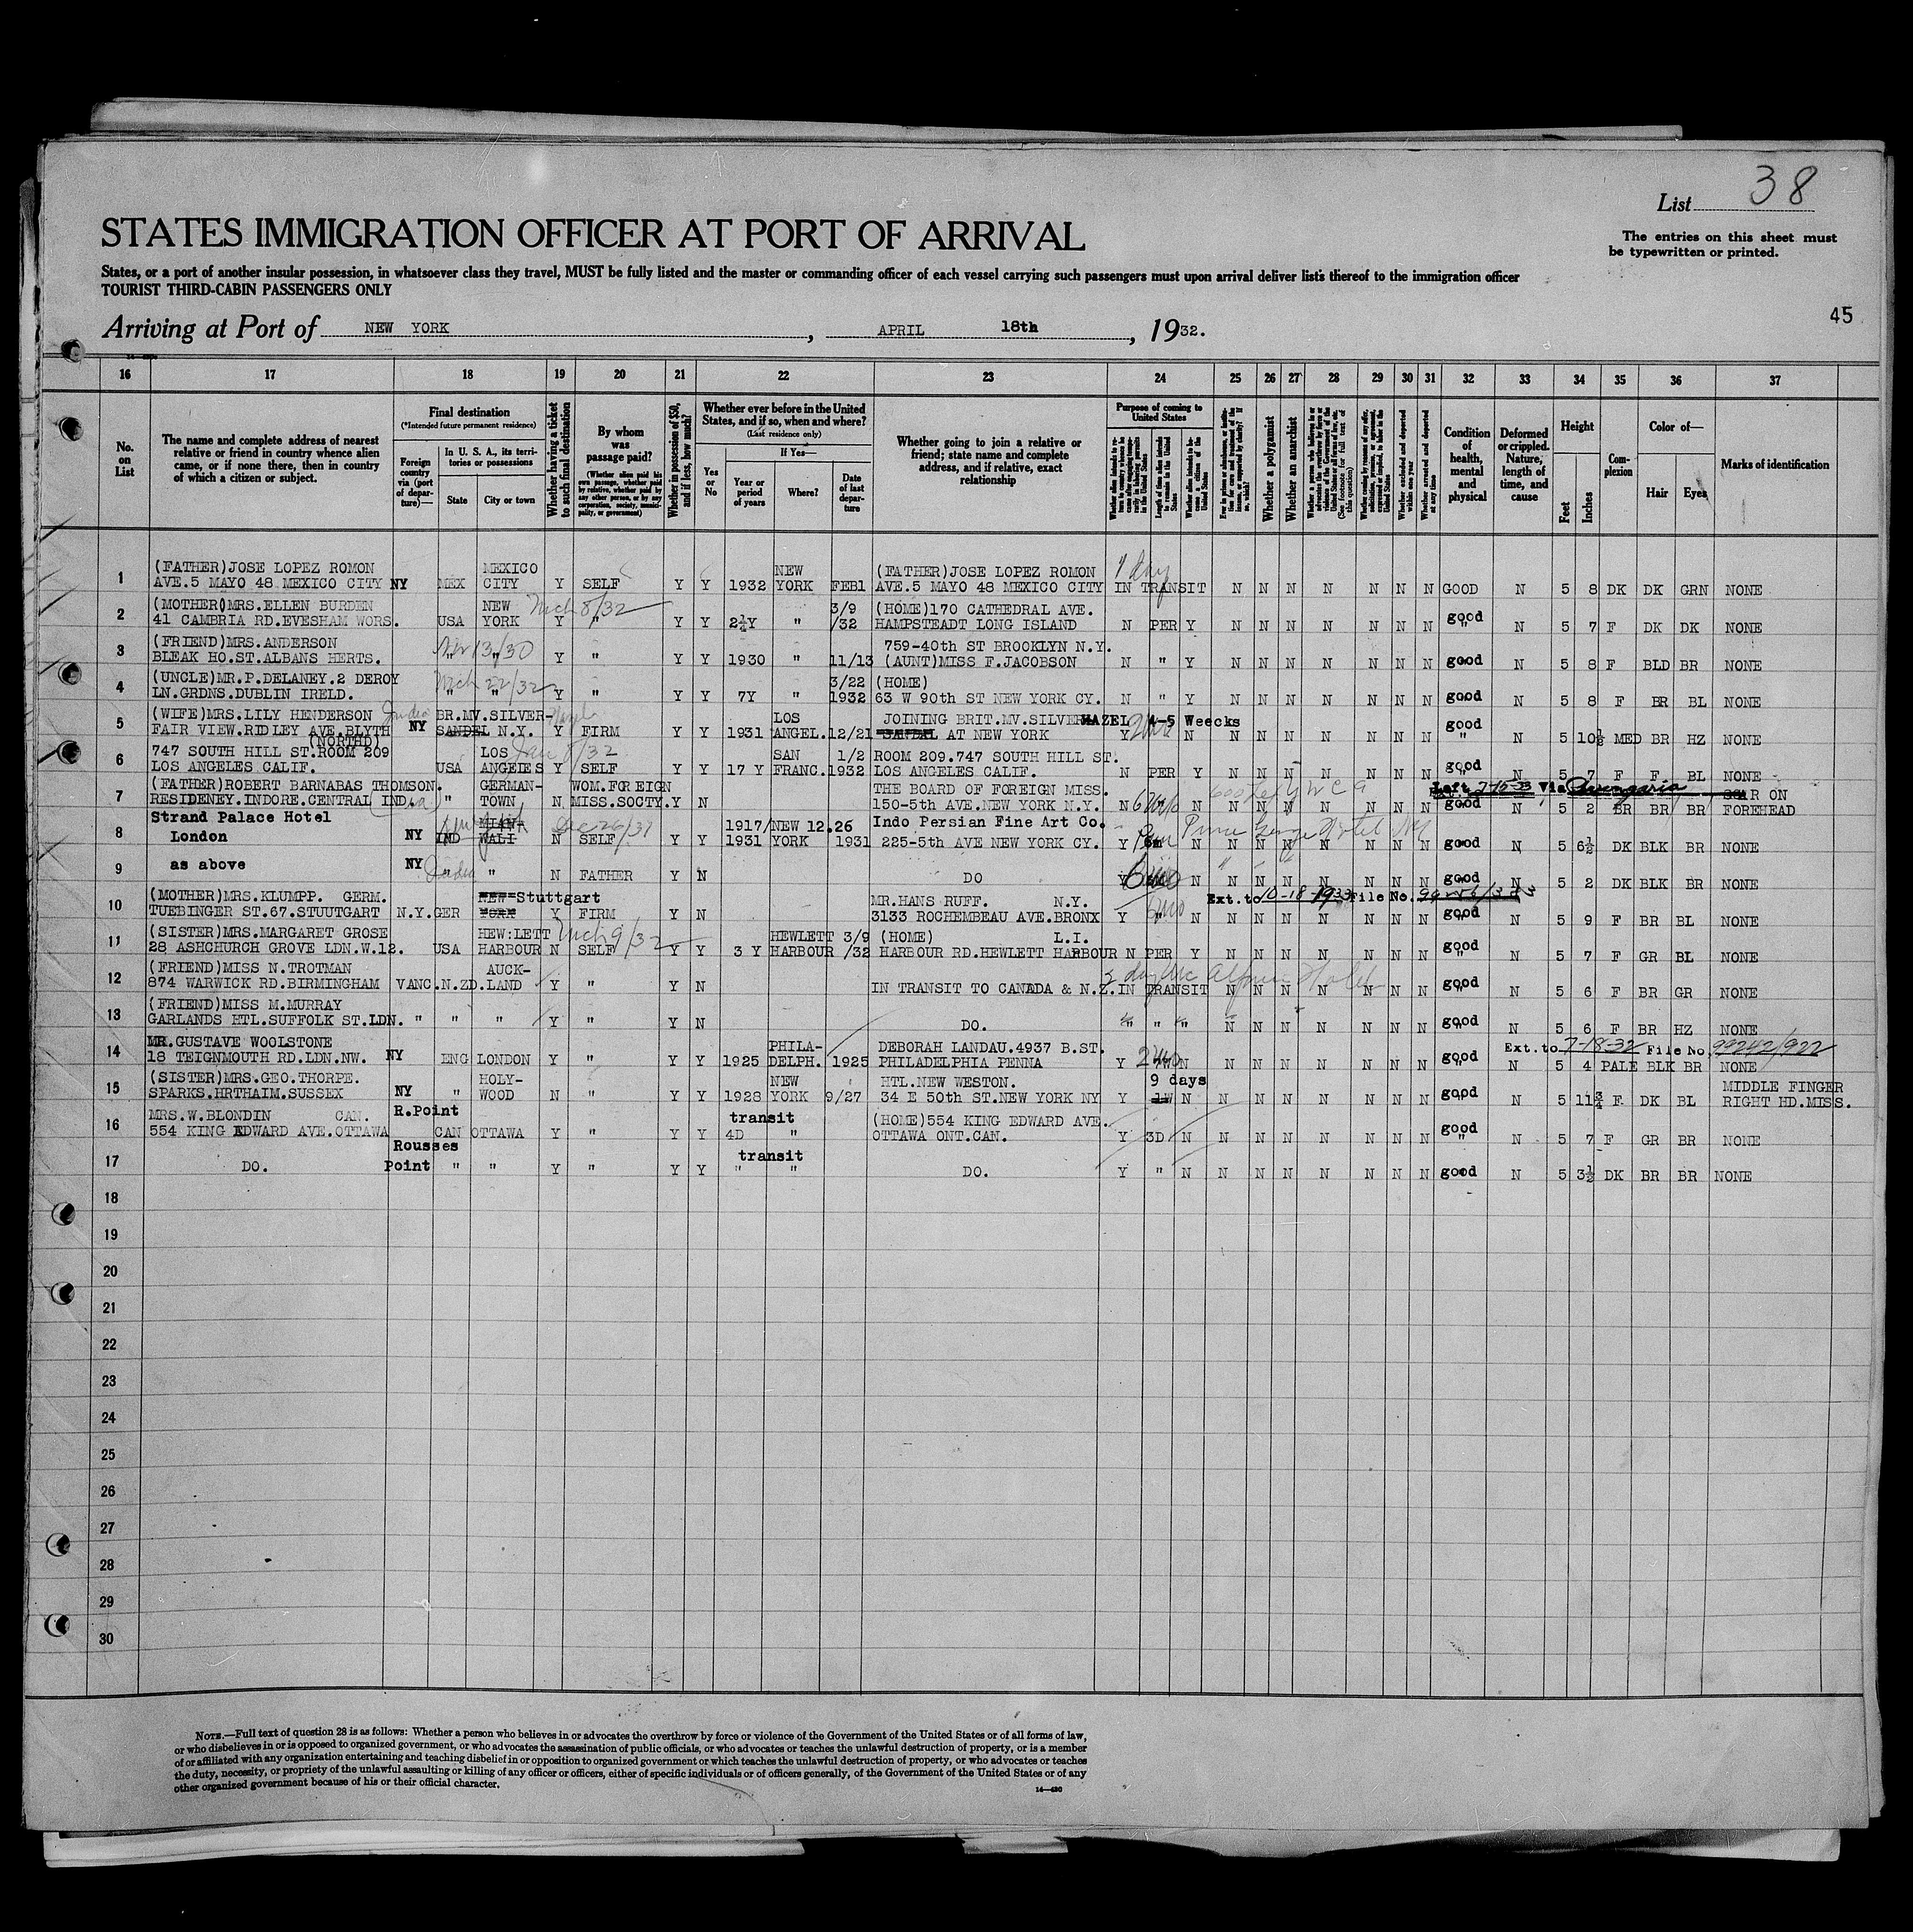 List 38
STATES IMMIGRATION OFFICER AT PORT OF ARRIVAL
The entries on this sheet must
be typewritten or printed.
States, or a port of another insular possession, in whatsoever class they travel, MUST be fully listed and the master or commanding officer of each vessel carrying such passengers must upon arrival deliver lists thereof to the immigration officer
TOURIST THIRD-CABIN PASSENGERS ONLY
45
Arriving at Port of NEW YORK, APRIL 18th, 1932.
16 17 18 19 20 21 22 23 24 25 26 27 28 29 30 31 32 33 34 35 36 37
No. on List
The name and complete address of nearest relative or friend in country whence alien came, or if none there, then in country of which a citizen or subject.
Final destination
(*Intended future permanent residence)
Foreign country via (port of departure)—
In U. S. A., its territories or possessions
State
City or town
Whether having a ticket to such final destination
By whom was passage paid?
(Whether alien paid his own passage, whether paid by relative, whether paid by any other person, or by any corporation, society, municipality, or government)
Whether in possession of $50, and if less, how much?
Whether ever before in the United States, and if so, when and where?
(Last residence only)
Yes or No
If Yes—
Year or period of years
Where?
Date of last departure
Whether going to join a relative or friend; state name and complete address, and if relative, exact relationship
Purpose of coming to United States
Whether a polygamist
Whether an anarchist
Condition of health, mental and physical
Deformed or crippled. Nature, length of time, and cause
Height
Feet
Inches
Complexion
Color of—
Hair
Eyes
Marks of identification
1 (FATHER)JOSE LOPEZ ROMON MEXICO NEW (FATHER)JOSE LOPEZ ROMON 1 day
AVE.5 MAYO 48 MEXICO CITY NY MEX CITY Y SELF Y Y 1932 YORK FEB1 AVE.5 MAYO 48 MEXICO CITY IN TRANSIT N N N N N N N GOOD N 5 8 DK DK GRN NONE
2 (MOTHER)MRS.ELLEN BURDEN NEW Mch 8/32 3/9 (HOME)170 CATHEDRAL AVE.
41 CAMBRIA RD.EVESHAM WORS. USA YORK Y " Y Y 2½Y " /32 HAMPSTEADT LONG ISLAND N PER Y N N N N N N N good " N 5 7 F DK DK NONE
3 (FRIEND)MRS.ANDERSON 13/30 759-40th ST BROOKLYN N.Y.
BLEAK HO.ST.ALBANS HERTS. " " Y " Y Y 1930 " 11/13 (AUNT)MISS F.JACOBSON N " Y N N N N N N N good N 5 8 F BLD BR NONE
4 (UNCLE)MR.P.DELANEY.2 DEROY Mch 22/32 3/22 (HOME)
LN.GRDNS.DUBLIN IRELD. " " Y " Y Y 7Y " 1932 63 W 90th ST NEW YORK CY. N " Y N N N N N N N good N 5 8 F BR BL NONE
5 (WIFE)MRS.LILY HENDERSON BR.MV.SILVER- LOS JOINING BRIT.MV.SILVER HAZEL 4-5 Weecks
FAIR VIEW.RIDLEY AVE.BLYTH NY SANDEL N.Y. Y FIRM Y Y 1931 ANGEL. 12/21 SANDAL AT NEW YORK Y N N N N N N N N good " N 5 10½ MED BR HZ NONE
(NORTHD)
6 747 SOUTH HILL ST.ROOM 209 LOS Jan 8/32 SAN 1/2 ROOM 209.747 SOUTH HILL ST.
LOS ANGELES CALIF. USA ANGELES Y SELF Y Y 17 Y FRANC. 1932 LOS ANGELES CALIF. N PER Y N N N N N N N good " N 5 7 F F BL NONE
7 (FATHER)ROBERT BARNABAS THOMSON. GERMAN- WOM.FOREIGN THE BOARD OF FOREIGN MISS. Left 2-15-33 Via SCAR ON
RESIDENEY.INDORE.CENTRAL INDia " TOWN N MISS.SOCTY. Y N 150-5th AVE.NEW YORK N.Y. N N N N N N N N good N 5 2 BR BR BR FOREHEAD
8 Strand Palace Hotel MIAN- Dec 26/31 1917/ NEW 12.26 Indo Persian Fine Art Co. Prince George Hotel NY
London NY IND WALI N SELF Y Y 1931 YORK 1931 225-5th AVE NEW YORK CY. Y N N N N N N N N good N 5 6½ DK BLK BR NONE
9 as above NY " " N FATHER Y N DO Y N N N N N N N N good N 5 2 DK BLK BR NONE
10 (MOTHER)MRS.KLUMPP. GERM. NEW Stuttgart MR.HANS RUFF. N.Y. Ext. to 10-18-1933 File No.
TUEBINGER ST.67.STUUTGART N.Y. GER YORK Y FIRM Y N 3133 ROCHEMBEAU AVE.BRONX Y " N N N N N N N N good N 5 9 F BR BL NONE
11 (SISTER)MRS.MARGARET GROSE HEW:LETT Mch 9/32 HEWLETT 3/9 (HOME) L.I.
28 ASHCHURCH GROVE LDN.W.12. USA HARBOUR N SELF Y Y 3 Y HARBOUR /32 HARBOUR RD.HEWLETT HARBOUR N PER Y N N N N N N N good " N 5 7 F GR BL NONE
12 (FRIEND)MISS N.TROTMAN AUCK- Hotel
874 WARWICK RD.BIRMINGHAM VANC. N.ZD. LAND Y " Y N IN TRANSIT TO CANADA & N.Z. IN TRANSIT N N N N N N N good " N 5 6 F BR GR NONE
13 (FRIEND)MISS M.MURRAY
GARLANDS HTL.SUFFOLK ST.LDN. " " " Y " Y N DO. " " " N N N N N N N good " N 5 6 F BR HZ NONE
14 MR.GUSTAVE WOOLSTONE PHILA- DEBORAH LANDAU.4937 B.ST. Ext. to 7-18-32 File No. 99242/922
18 TEIGNMOUTH RD.LDN.NW. NY ENG LONDON Y " Y Y 1925 DELPH. 1925 PHILADELPHIA PENNA Y N N N N N N N N good " N 5 4 PALE BLK BR NONE
15 (SISTER)MRS.GEO.THORPE. HOLY- NEW HTL.NEW WESTON. 9 days MIDDLE FINGER
SPARKS.HRTHAIM.SUSSEX NY " WOOD N " Y Y 1928 YORK 9/27 34 E 50th ST.NEW YORK NY Y N N N N N N N N good N 5 11¾ F DK BL RIGHT HD.MISS.
16 MRS.W.BLONDIN CAN. R.Point transit (HOME)554 KING EDWARD AVE.
554 KING EDWARD AVE.OTTAWA CAN OTTAWA Y " Y Y 4D " OTTAWA ONT.CAN. Y 3D N N N N N N N N good " N 5 7 F GR BR NONE
17 Rousses transit
DO. Point " " Y " Y Y " " DO. Y " N N N N N N N N good N 5 3½ DK BR BR NONE
18
19
20
21
22
23
24
25
26
27
28
29
30
NOTE.—Full text of question 28 is as follows: Whether a person who believes in or advocates the overthrow by force or violence of the Government of the United States or of all forms of law,
or who disbelieves in or is opposed to organized government, or who advocates the assassination of public officials, or who advocates or teaches the unlawful destruction of property, or is a member
of or affiliated with any organization entertaining and teaching disbelief in or opposition to organized government or which teaches the unlawful destruction of property, or who advocates or teaches
the duty, necessity, or propriety of the unlawful assaulting or killing of any officer or officers, either of specific individuals or of officers generally, of the Government of the United States or of any
other organized government because of his or their official character.
14—430